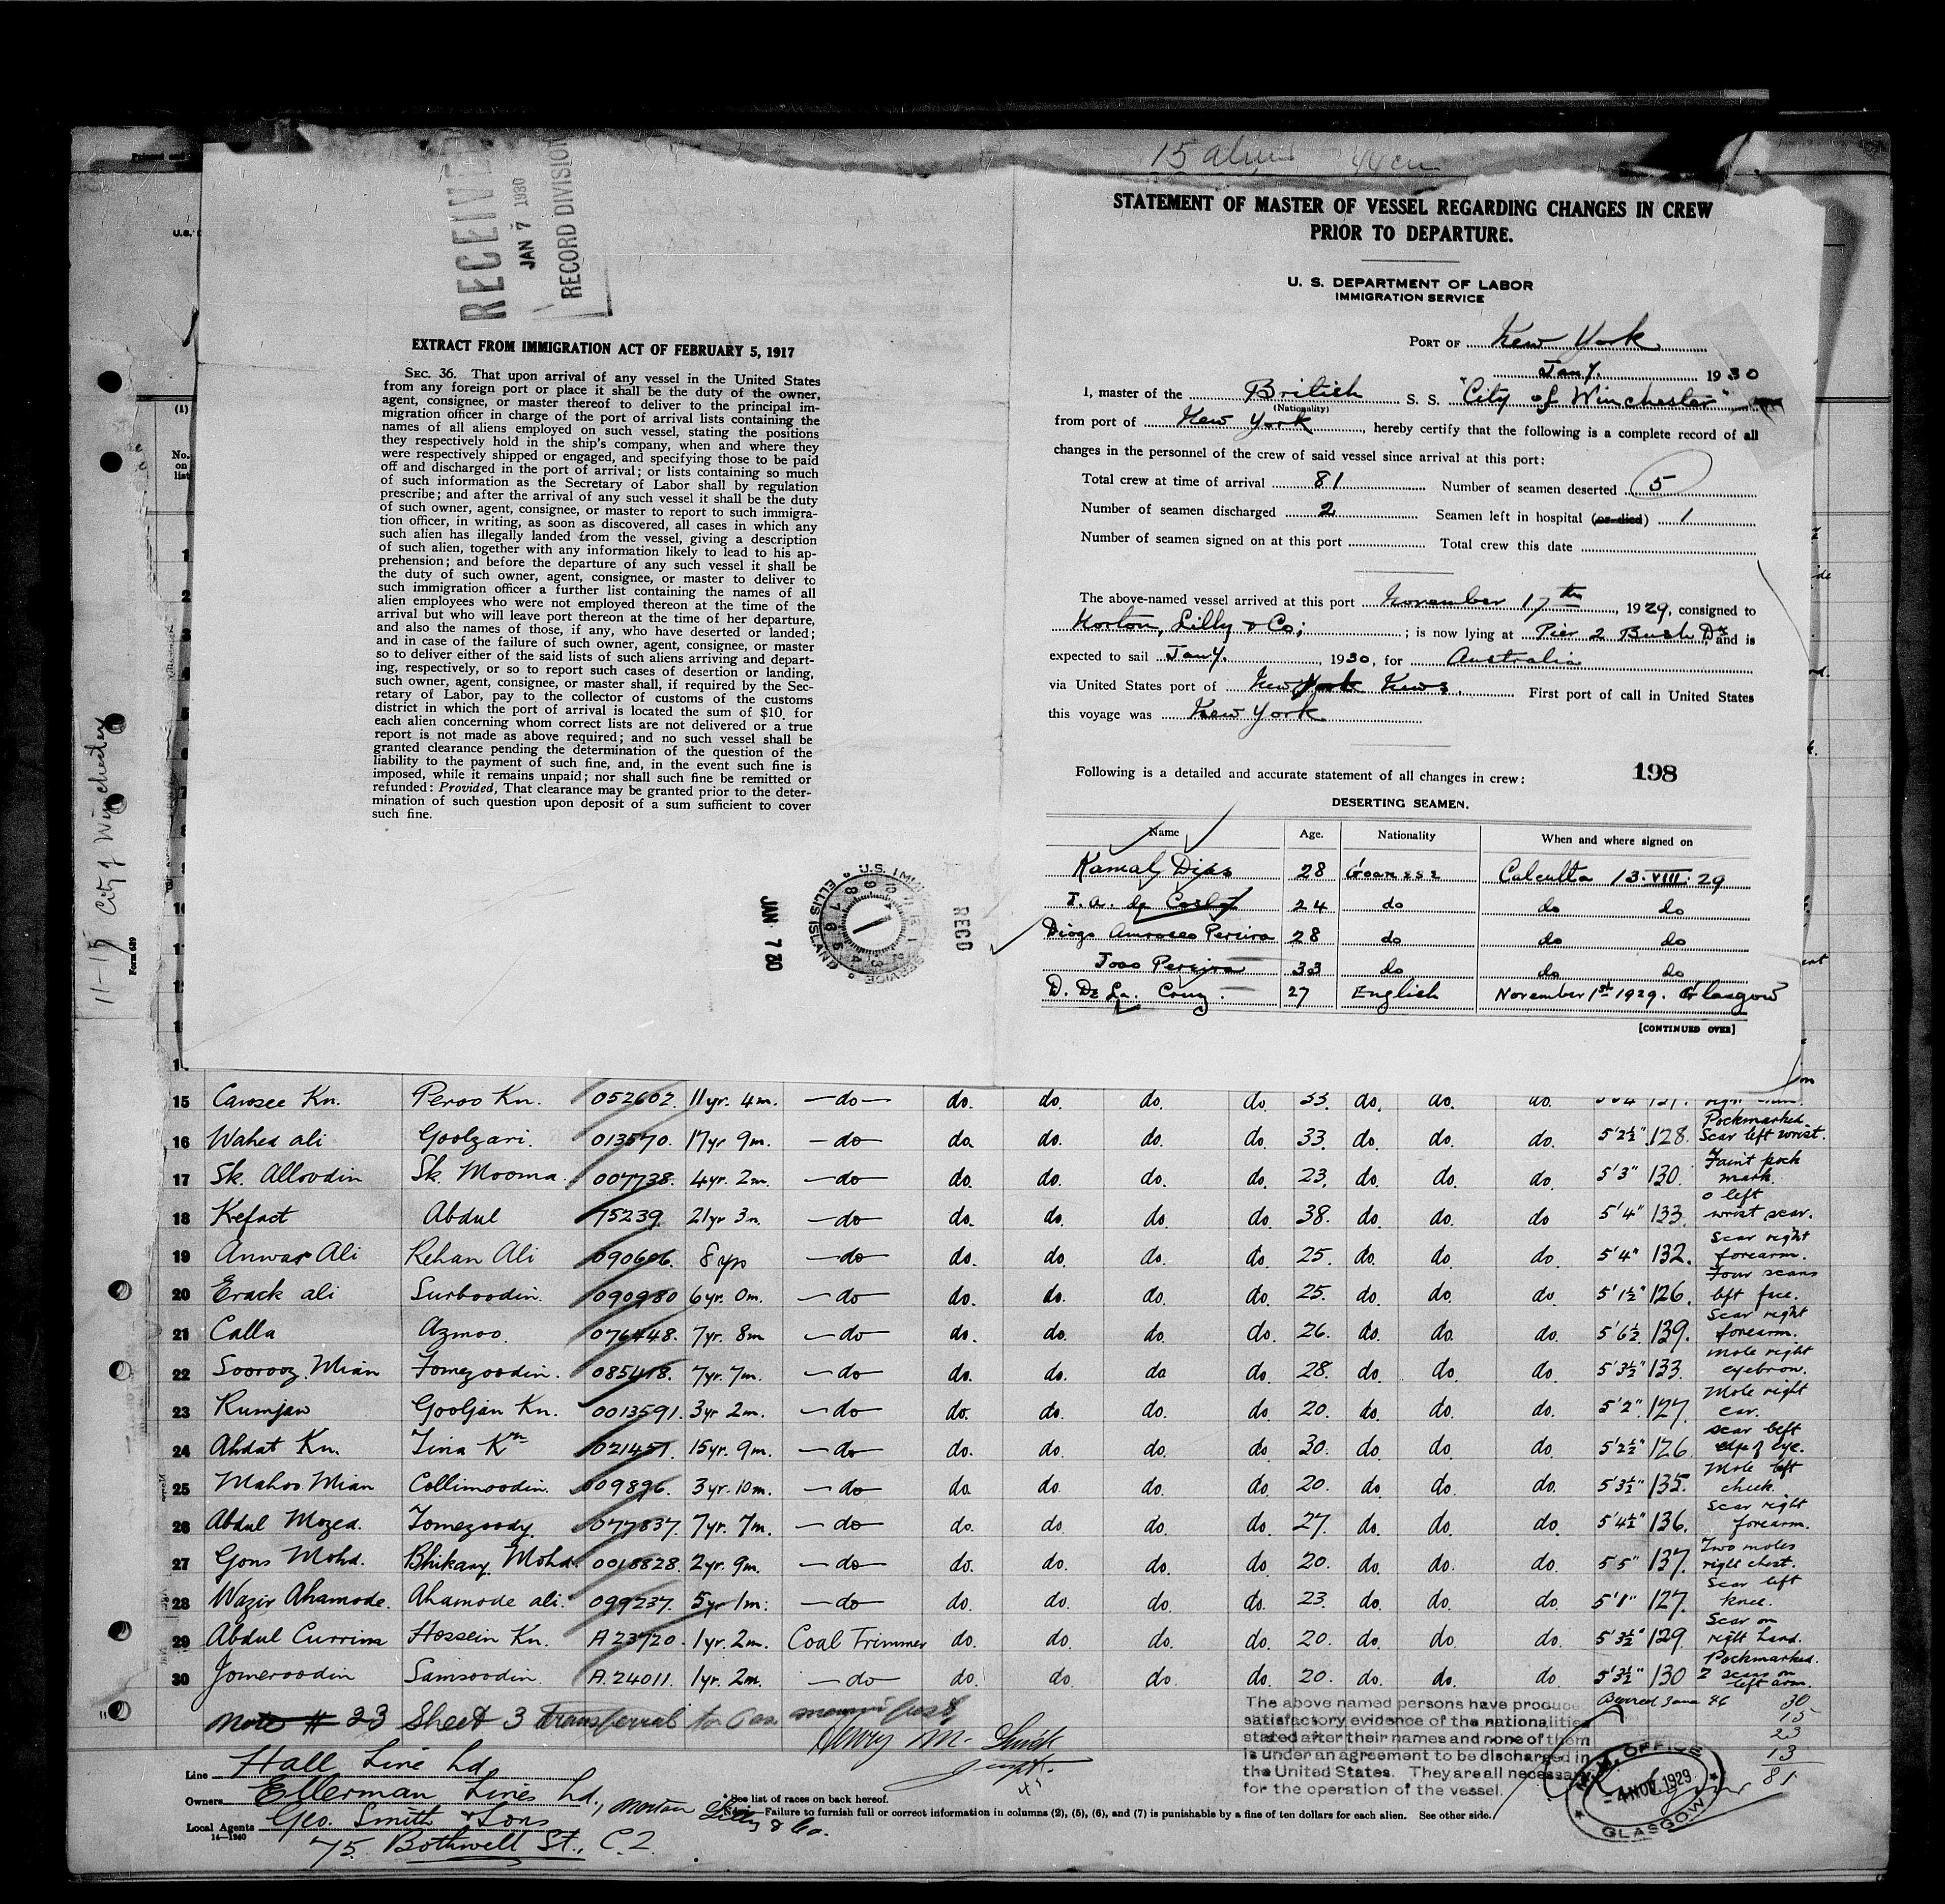 15 alien
RECEIVE
JAN 7 1930
RECORD DIVISION
EXTRACT FROM IMMIGRATION ACT OF FEBRUARY 5, 1917
SEC. 36. That upon arrival of any vessel in the United States
from any foreign port or place it shall be the duty of the owner,
agent, consignee, or master thereof to deliver to the principal im-
migration officer in charge of the port of arrival lists containing the
names of all aliens employed on such vessel, stating the positions
they respectively hold in the ship's company, when and where they
were respectively shipped or engaged, and specifying those to be paid
off and discharged in the port of arrival; or lists containing so much
of such information as the Secretary of Labor shall by regulation
prescribe; and after the arrival of any such vessel it shall be the duty
of such owner, agent, consignee, or master to report to such immigra-
tion officer, in writing, as soon as discovered, all cases in which any
such alien has illegally landed from the vessel, giving a description
of such alien, together with any information likely to lead to his ap-
prehension; and before the departure of any such vessel it shall be
the duty of such owner, agent, consignee, or master to deliver to
such immigration officer a further list containing the names of all
alien employees who were not employed thereon at the time of the
arrival but who will leave port thereon at the time of her departure,
and also the names of those, if any, who have deserted or landed;
and in case of the failure of such owner, agent, consignee, or master
so to deliver either of the said lists of such aliens arriving and depart-
ing, respectively, or so to report such cases of desertion or landing,
such owner, agent, consignee, or master shall, if required by the Sec-
retary of Labor, pay to the collector of customs of the customs
district in which the port of arrival is located the sum of $10, for
each alien concerning whom correct lists are not delivered or a true
report is not made as above required; and no such vessel shall be
granted clearance pending the determination of the question of the
liability to the payment of such fine, and, in the event such fine is
imposed, while it remains unpaid; nor shall such fine be remitted or
refunded: Provided, That clearance may be granted prior to the deter-
mination of such question upon deposit of a sum sufficient to cover
such fine.
JAN 7 30
U.S. IMMI SERVICE ELLIS ISLAND
REC'D
STATEMENT OF MASTER OF VESSEL REGARDING CHANGES IN CREW
PRIOR TO DEPARTURE.
U. S. DEPARTMENT OF LABOR
IMMIGRATION SERVICE
PORT OF New York
Jan 7. 1930
I, master of the British S. S. "City of Winchester"
(Nationality)
from port of New York, hereby certify that the following is a complete record of all
changes in the personnel of the crew of said vessel since arrival at this port:
Total crew at time of arrival 81 Number of seamen deserted 5
Number of seamen discharged 2 Seamen left in hospital (or died) 1
Number of seamen signed on at this port Total crew this date
The above-named vessel arrived at this port November 17th, 1929, consigned to
Norton, Lilly & Co; ; is now lying at Pier 2 Bush Dk, and is
expected to sail Jan 7., 1930, for Australia
via United States port of New York News. First port of call in United States
this voyage was New York
Following is a detailed and accurate statement of all changes in crew: 198
DESERTING SEAMEN.
Name Age. Nationality When and where signed on
Kamal Dias 28 Goanese Calcutta 13.VIII.29
J. A. da Costa 24 do do do
Diogo Amroseo Pereira 28 do do do
Joao Pereira 33 do do do
D. De La Cruz. 27 English November 1st 1929. Glasgow
[CONTINUED OVER]
(1)
No.
on
list
11-15 City of Winchester
Form 689
15 Carosee Kn. Peroo Kn. 052602. 11yr. 4m. —do— do. do. do. do. 33. do. do. do.
16 Wahed ali Goolzari. 013570. 17yr 9m. —do— do. do. do. do. 33. do. do. do. 5'2½" 128. Pockmarked. Scar left wrist.
17 Sk. Alloodin Sk. Mooma. 007738. 4yr. 2m. —do— do. do. do. do. 23. do. do. do. 5'3" 130. Faint pock mark.
18 Kefact Abdul 75239. 21yr 3m. —do— do. do. do. do. 38. do. do. do 5'4" 133. left wrist scar.
19 Anwar Ali Rehan Ali 090606. 8yrs —do— do. do. do. do. 25. do. do. do 5'4" 132. Scar right forearm.
20 Erack ali Surboodin. 090980 6yr. 0m. —do— do. do. do. do. 25. do. do. do 5'1½" 126. Four scars left face.
21 Calla Azmoo. 076448. 7yr. 8m —do— do. do. do. do. 26. do. do. do. 5'6½ 139. Scar right forearm.
22 Soorooz Mian Fomezoodin. 085418. 7yr. 7m. —do— do. do. do do. 28. do. do. do. 5'3½" 133. Mole right eyebrow.
23 Rumjan Gooljan Kn. 0013591. 3yr 2m. —do— do. do. do. do. 20. do. do. do. 5'2" 127. Mole right ear.
24 Ahdat Kn. Tina Kn 021451. 15yr. 9m. —do— do. do. do. do. 30. do do. do. 5'2½" 126. scar left edge of eye.
25 Mahoo Mian Collimoodin. 009896. 3yr. 10m. —do— do. do. do. do. 20. do. do. do. 5'3½" 135. Mole left cheek.
26 Abdul Mozed. Fomezoody 077837. 7yr. 7m. —do— do. do. do. do. 27. do. do. do. 5'4½" 136. Scar right forearm.
27 Gons Mohd. Bhikary Mohd. 0018828. 2yr. 9m. —do— do. do. do. do. 20. do. do. do. 5'5" 137. Two moles right chest.
28 Wazir Ahamode. Ahamode ali. 099237. 5yr 1m. —do— do. do. do. do. 23. do. do. do. 5'1" 127. Scar left knee.
29 Abdul Currim Hossein Kn. A 23720. 1yr. 2m. Coal Trimmer do. do. do. do. 20. do. do. do. 5'3½" 129. Scar on right hand.
30 Jomeroodin Samsoodin. A. 24011. 1yr. 2m. —do— do. do. do. do. 20. do. do. do. 5'3½" 130 Pockmarked. 2 scars on left arm.
Note # 23 Sheet 3 Transferred to Pas. manifest
Henry M. Smith
Inspt.
The above named persons have produce
satisfactory evidence of the nationalities
stated after their names and none of them
is under an agreement to be discharged in
the United States. They are all necessary
for the operation of the vessel.
30
15
23
13
81
W. M. OFFICE
-4 NOV. 1929
GLASGOW
Line Hall Line Ld.
Owners Ellerman Lines Ld., Norton Lilly & Co.
Local Agents Geo. Smith & Sons
14—1240
75 Bothwell St., C.2.
* See list of races on back hereof.
Note.—Failure to furnish full or correct information in columns (2), (5), (6), and (7) is punishable by a fine of ten dollars for each alien. See other side.